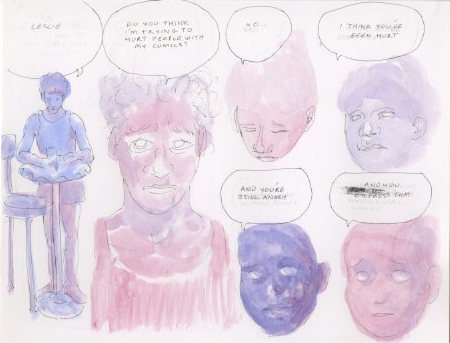 LESLIE
DO YOU THINK
I'M TRYING TO
HURT PEOPLE WITH
MY COMICS?
NO...
I THINK YOU'VE
BEEN HURT
AND YOU'RE
STILL ANGRY
AND YOU
EXPRESS THAT